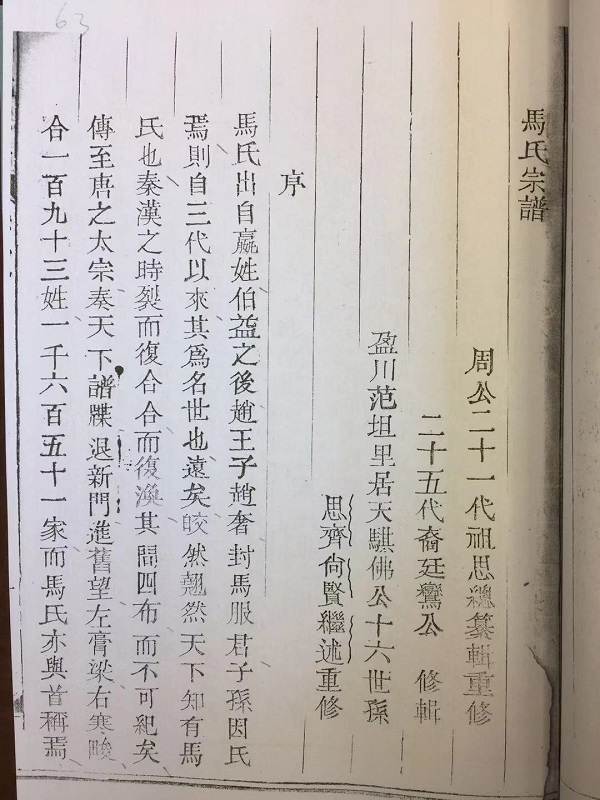 馬氏宗譜
周公二十一代祖思總纂輯重修
二十五代裔廷鸞公 修輯
盈川范坦里居天騏佛公十六世孫
思齊尙賢繼述重修
序
馬氏出自嬴姓伯益之後趙王子趙奢封馬服君子孫因氏
焉則自三代以來其爲名世也遠矣皎然翹然天下知有馬
氏也秦漢之時裂而復合合而復渙其間四布而不可紀矣
傳至唐之太宗奏天下譜牒退新門進舊望左膏梁右寒畯
合一百九十三姓一千六百五十一家而馬氏亦與首稱焉
63